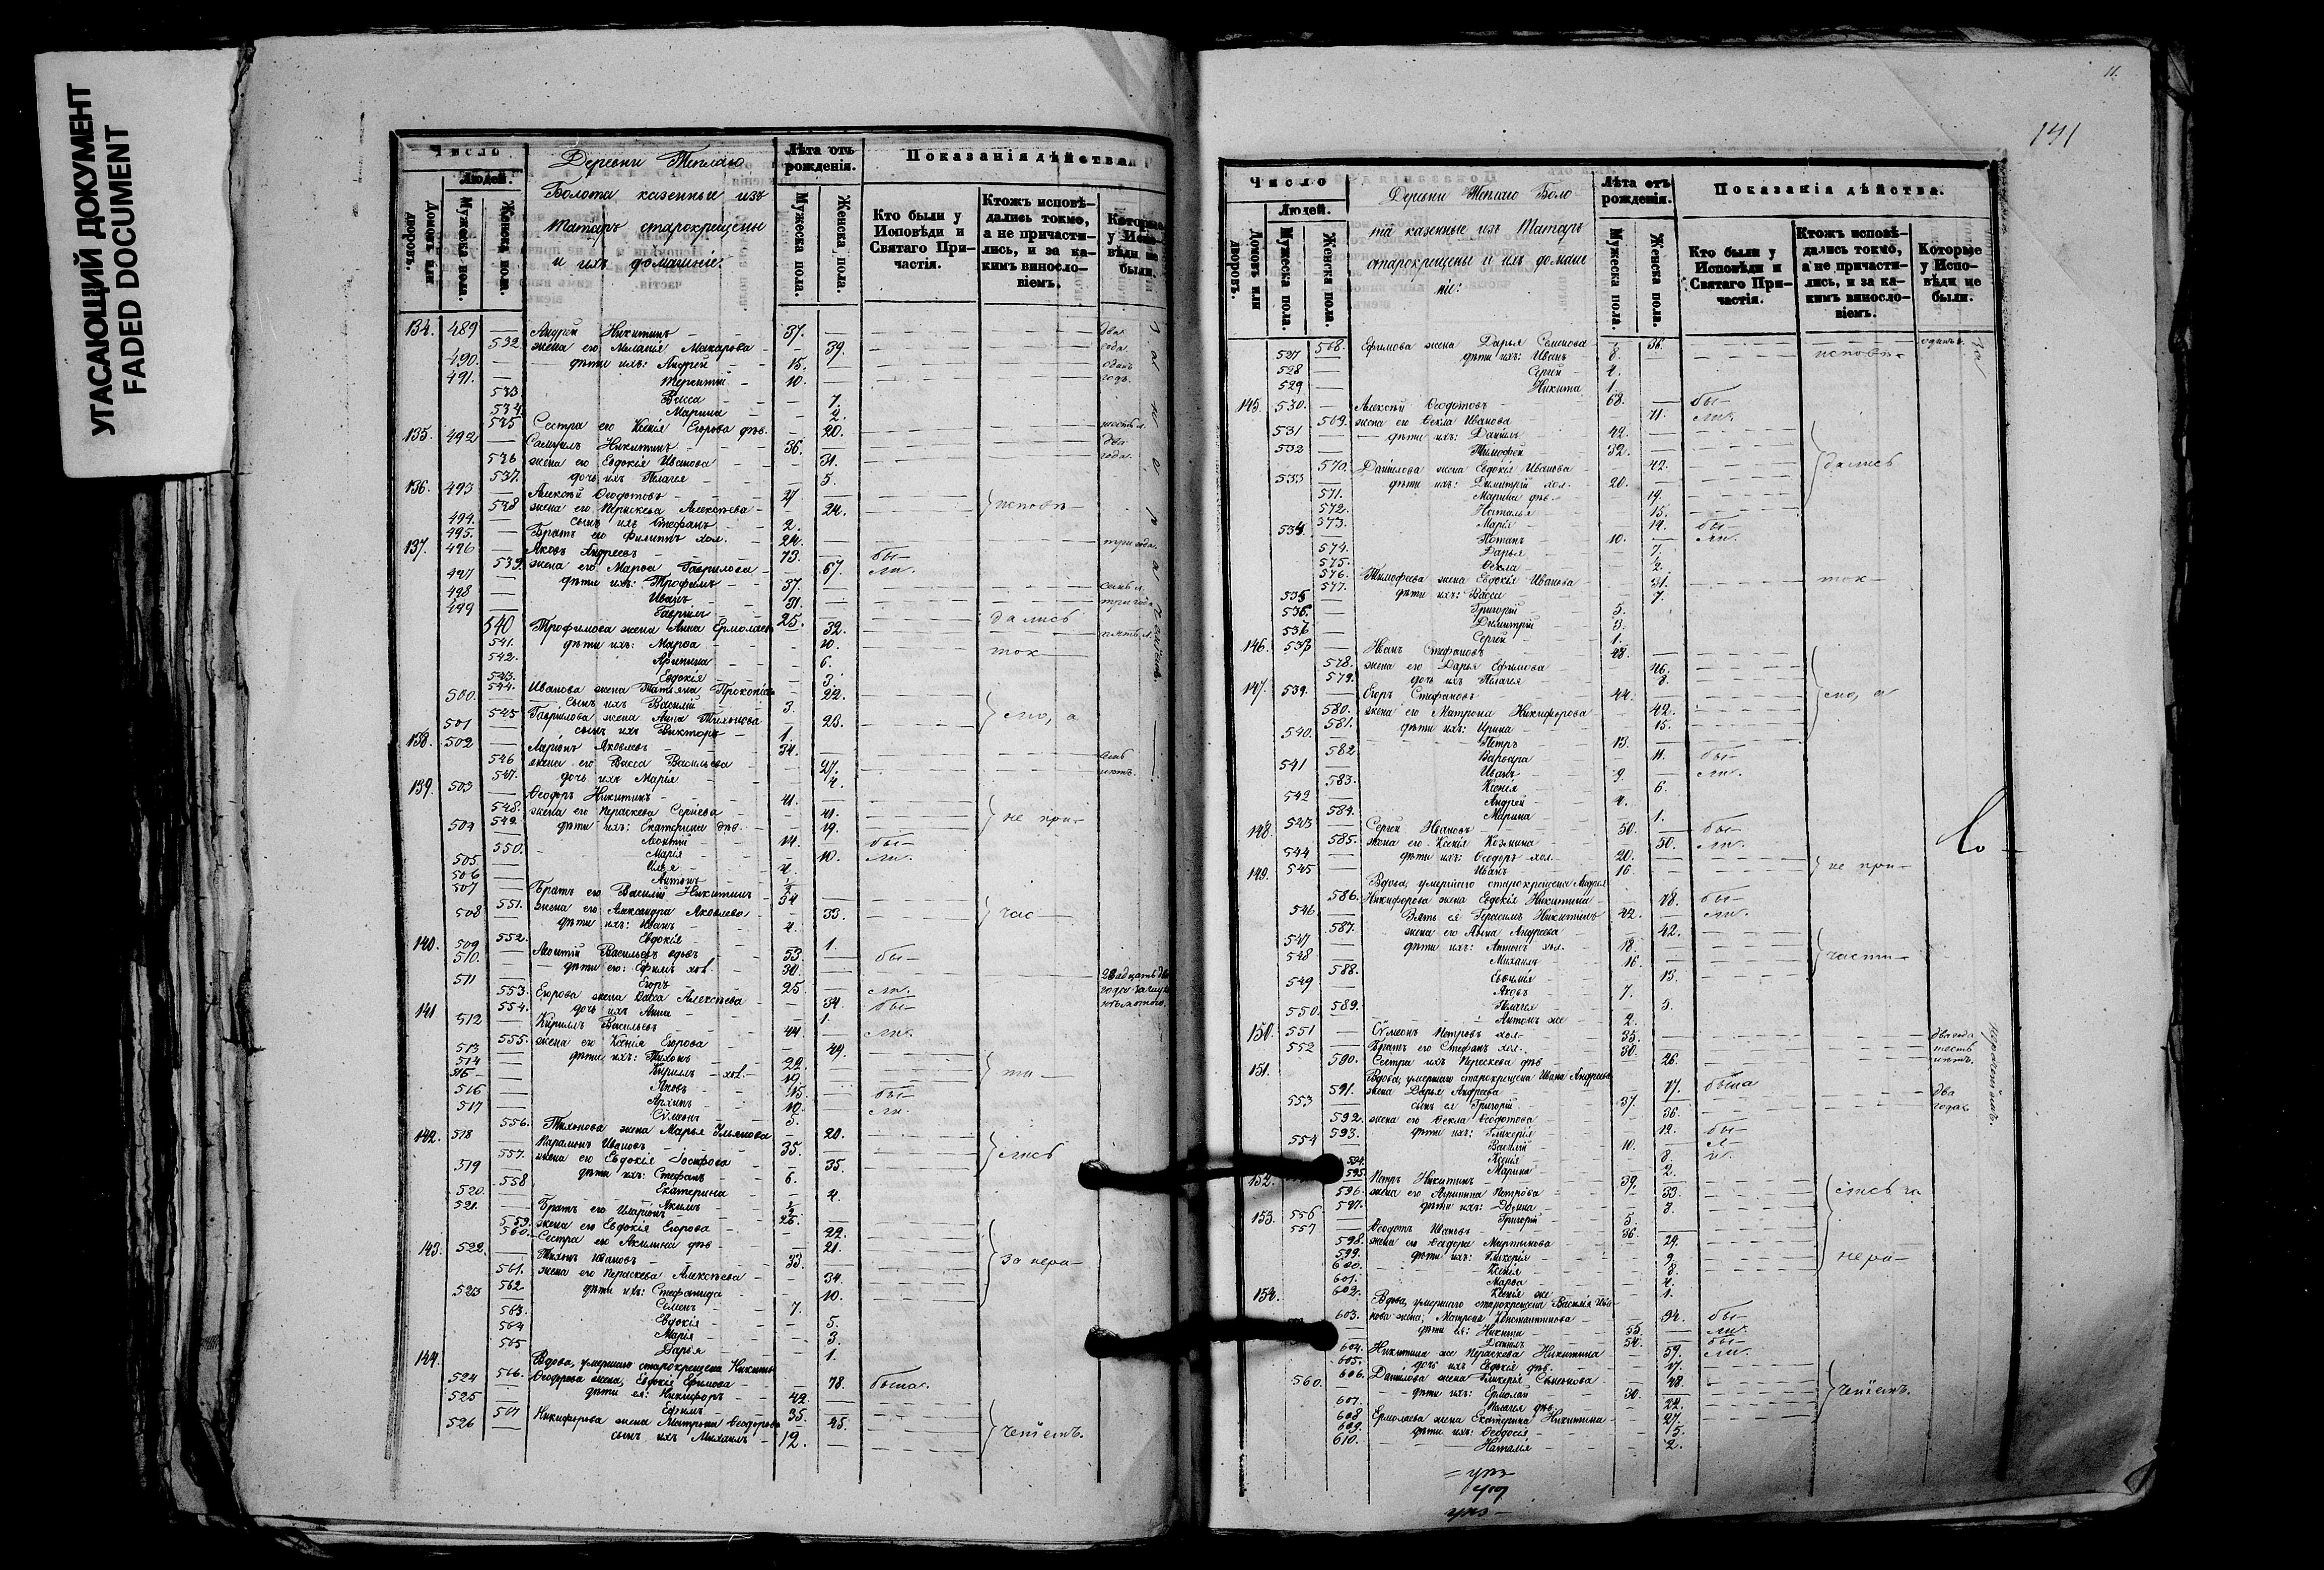 УГАСАЮЩИЙ ДОКУМЕНТ
FADED DOCUMENT
Число
Людей.
Домовъ или дворовъ.
Мужеска пола.
Женска пола.
Деревни Теплаго
Болота казенные изъ
Татаръ старокрещены
и ихъ домашніе:
Лѣта отъ рожденія.
Мужеска пола.
Женска пола.
Показанія дѣйства
Кто были у Исповѣди и Святаго Причастія.
Ктожъ исповѣдались токмо, а не причастились, и за какимъ винословіемъ.
Которые у Исповѣди не были.
134. 489 — Андрей Никитинъ 37. два
532. жена его Меланія Макарова 39. года.
490. дѣти ихъ: Андрей 15. одинъ
491. Терентій 10. годъ.
533. Васса 7.
534. Марина 2.
535 Сестра его Ксенія Егорова дѣв. 20.
135. 492 Самуилъ Никитинъ 36. два
536 жена его Евдокія Иванова 31. года.
537. дочь ихъ Пелагея 5.
136. 493 Алексѣй Ѳеодотовъ 27
538 жена его Параскева Алексѣева 24. исповѣ
494. сынъ ихъ Стефанъ 2.
495. Братъ его Филиппъ хол. 24. три года.
137. 496 Яковъ Андреевъ 73. бы-
539. жена его Марѳа Гаврилова 67. ли.
497 дѣти ихъ: Трофимъ 37.
498 Иванъ 31.
499 Гавріилъ 25. дались
540 Трофимова жена Анна Ермолаева 32.
541. дѣти ихъ: Марѳа 10. ток
542. Агрипина 6.
543. Евдокія 3.
544. Иванова жена Татьяна Прокопіева 22.
500. сынъ ихъ Василій 3.
545 Гаврилова жена Анна Тихонова 23. мо, а
501 сынъ ихъ Викторъ 1.
138. 502 Ларіонъ Яковлевъ 34.
546 жена его Васса Васильева 27.
547. дочь ихъ Марія 4.
139. 503 Ѳеодоръ Никитинъ 41.
548. жена его Параскева Сергѣева 41. не при-
549. дѣти ихъ: Екатерина дѣв. 19.
504 Леонтій 14. бы-
550. Марія 10. ли.
505. Илья 4.
506 Антонъ
507 Братъ его Василій Никитинъ 54
551. жена его Александра Яковлева 33. час-
508 дѣти ихъ: Иванъ 4.
552. Евдокія 1.
140. 509 Леонтій Васильевъ вдовъ 53. бы-
510. дѣти его: Ефимъ хол. 30.
511 Егоръ 25. ли.
553. Егорова жена Васса Алексѣева 34. бы-
554. дочь ихъ Анна 1.
141 512 Кириллъ Васильевъ 44. ли.
555. жена его Ксенія Егорова 49.
513 дѣти ихъ: Тихонъ 22.
514 Кириллъ хол. 19. ти
515 Яковъ 15.
516 Архипъ 10. бы-
517 Сѵмеонъ 5. ли.
556. Тихонова жена Марья Ульянова 20.
142. 518 Парамонъ Ивановъ 35. лись
557. жена его Евдокія Іосифова 35.
519 дѣти ихъ: Стефанъ 6.
558 Екатерина 4.
520. Акимъ
521. Братъ его Иларіонъ 25.
559. жена его Евдокія Егорова 22.
560. Сестра его Акилина дѣв 21.
143. 522. Тихонъ Ивановъ 33. за нера-
561. жена его Параскева Алексѣева 34.
562 дѣти ихъ: Стефанида 10.
523 Семенъ 7.
563. Евдокія 5.
564 Марія 3.
565 Дарья 1.
144. Вдова, умершаго старокрещена Никиты
566. Ѳеодорова жена, Евдокія Ефимова 78. была.
524 дѣти ея: Никифоръ 42.
525 Ефимъ 35.
567 Никифорова жена Матрона Ѳеодорова 45.
526 сынъ ихъ Михаилъ 12. ченіемъ.
11.
141
Число
Людей.
Домовъ или дворовъ.
Мужеска пола.
Женска пола.
Деревни Теплаго Боло
та казенные изъ Татаръ
старокрещены и ихъ домаш
ніе:
Лѣта отъ рожденія.
Мужеска пола.
Женска пола.
Показанія дѣйства.
Кто были у Исповѣди и Святаго Причастія.
Ктожъ исповѣдались токмо, а не причастились, и за какимъ винословіемъ.
Которые у Исповѣди не были.
568. Ефимова жена Дарья Семенова 36.
527 дѣти ихъ: Иванъ 8. исповѣ
528 Сергѣй 4.
529 Никита 1.
145. 530. Алексѣй Ѳеодотовъ 68. бы-
569. жена его Ѳекла Иванова 71. ли.
531 дѣти ихъ: Даніилъ 42.
532 Тимофей 32.
570. Данилова жена Евдокія Иванова 42. дались
533 дѣти ихъ: Димитрій хол. 20.
571. Марина дѣв. 19.
572. Наталья 15.
573. Марія 14. бы-
534 Потапъ 10. ли.
574. Дарья 7.
575. Ѳекла 2.
576. Тимофеева жена Евдокія Иванова 31. ток-
577. дѣти ихъ: Васса 7.
535 Григорій 5.
536. Димитрій 3.
537 Сергѣй 1.
146. 538 Иванъ Стефановъ 48.
578. жена его Дарья Ефимова 46.
579. дочь ихъ Пелагея 8.
147. 539. Егоръ Стефановъ 44. мо, а
580. жена его Матрона Никифорова 42.
581. дѣти ихъ: Ирина 15.
540. Петръ 13.
582 Варвара 11. бы-
541 Иванъ 9. ли.
583. Ксенія 6.
542 Андрей 4.
584. Марина 1.
148. 543 Сергѣй Ивановъ 50. бы-
585. жена его Ксенія Козмина 50. ли.
544 дѣти ихъ: Ѳеодоръ хол. 20.
545 Иванъ 16 не при-
149. Вдова, умершаго старокрещена Андрея
586. Никифорова жена Евдокія Никитина 78. бы-
546 Зять ея Герасимъ Никитинъ 42. ли.
587. жена его Анна Андреева 42.
547 дѣти ихъ: Антонъ хол. 18.
548 Михаилъ 16. части-
588. Евфимія 13.
549 Яковъ 7.
589. Пелагея 5.
550 Антонъ же 2.
150. 551 Сѵмеонъ Петровъ хол. 35. два года
552 Братъ его Стефанъ хол. 30. шесть
590. Сестра ихъ Параскева дѣв 26. лѣтъ.
151. Вдова, умершаго старокрещена Ивана Андреева
591. жена Дарья Андреева 77. была
553 сынъ ея Григорій 37. два
592. жена его Ѳекла Ѳеодотова 36. года.
593. дѣти ихъ: Гликерія 12. бы-
554 Василій 10. л-
594. Ксенія 8. и.
595. Марина 2.
152. Петръ Никитинъ 39. лись за
596. жена его Агрипина Петрова 33.
597. дѣти ихъ: 3.
556 Григорій 5.
153. 557 Ѳеодотъ Ивановъ 36.
598. жена его Ѳедора Мартынова 29.
599. дѣти ихъ: Гликерія 9. нера-
600. Ксенія 8.
601. Марѳа 4.
602. Ксенія же 1.
154. Вдова, умершаго старокрещена Василія
603. жена, Матрона Константинова 94. бы-
дѣти ея: Никита 55. ли.
Даніилъ 54. бы-
604. Никитина же Параскева Никитина 59. ли.
605. дочь ихъ Евдокія дѣв. 17.
606. Данілова жена Гликерія Семенова 48
560. дѣти ихъ: Ермолай 30. ченіемъ.
607. Пелагея дѣв. 22.
608 Ермолаева жена Екатерина Никитина 27.
609. дѣти ихъ: Ѳеодосія 5.
610. Наталія 2.